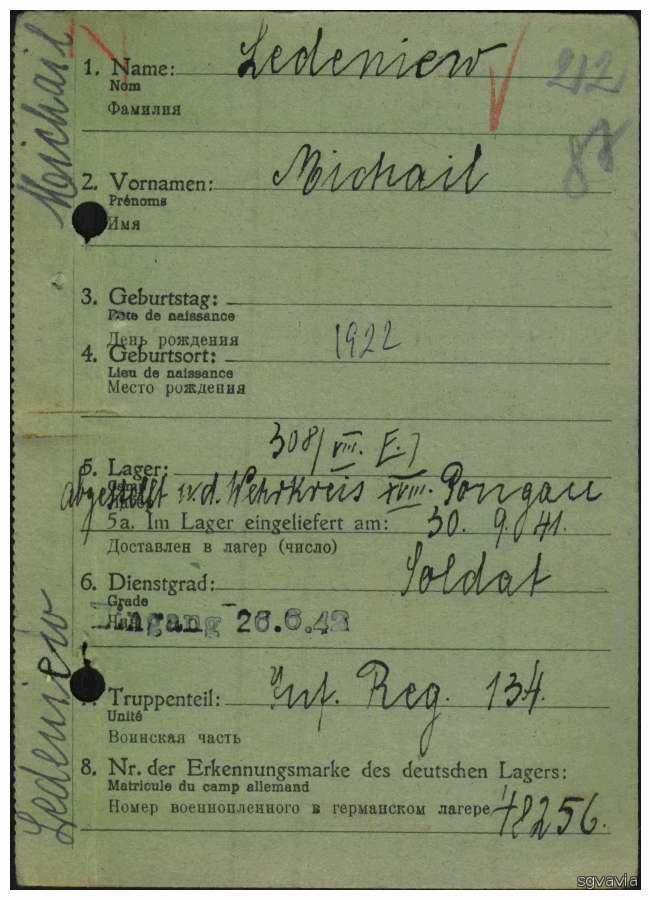 Michail
1. Name: Ledeniew
Nom
Фамилия
212
2. Vornamen: Michail
Prénoms
Имя
3. Geburtstag:
Date de naissance
День рождения
1922
4. Geburtsort:
Lieu de naissance
Место рождения
308/VIII. E.)
5. Lager:
abgestellt n.d. Wehrkreis XVIII. Pongau
5a. Im Lager eingeliefert am: 30. 9. 41.
Доставлен в лагер (число)
6. Dienstgrad: Soldat
Grade
26.6.42
Truppenteil: Inf. Reg. 134.
Unité
Воинская часть
8. Nr. der Erkennungsmarke des deutschen Lagers:
Matricule du camp allemand
Номер военнопленного в германском лагере 48256.
Ledeniew
sgvavia